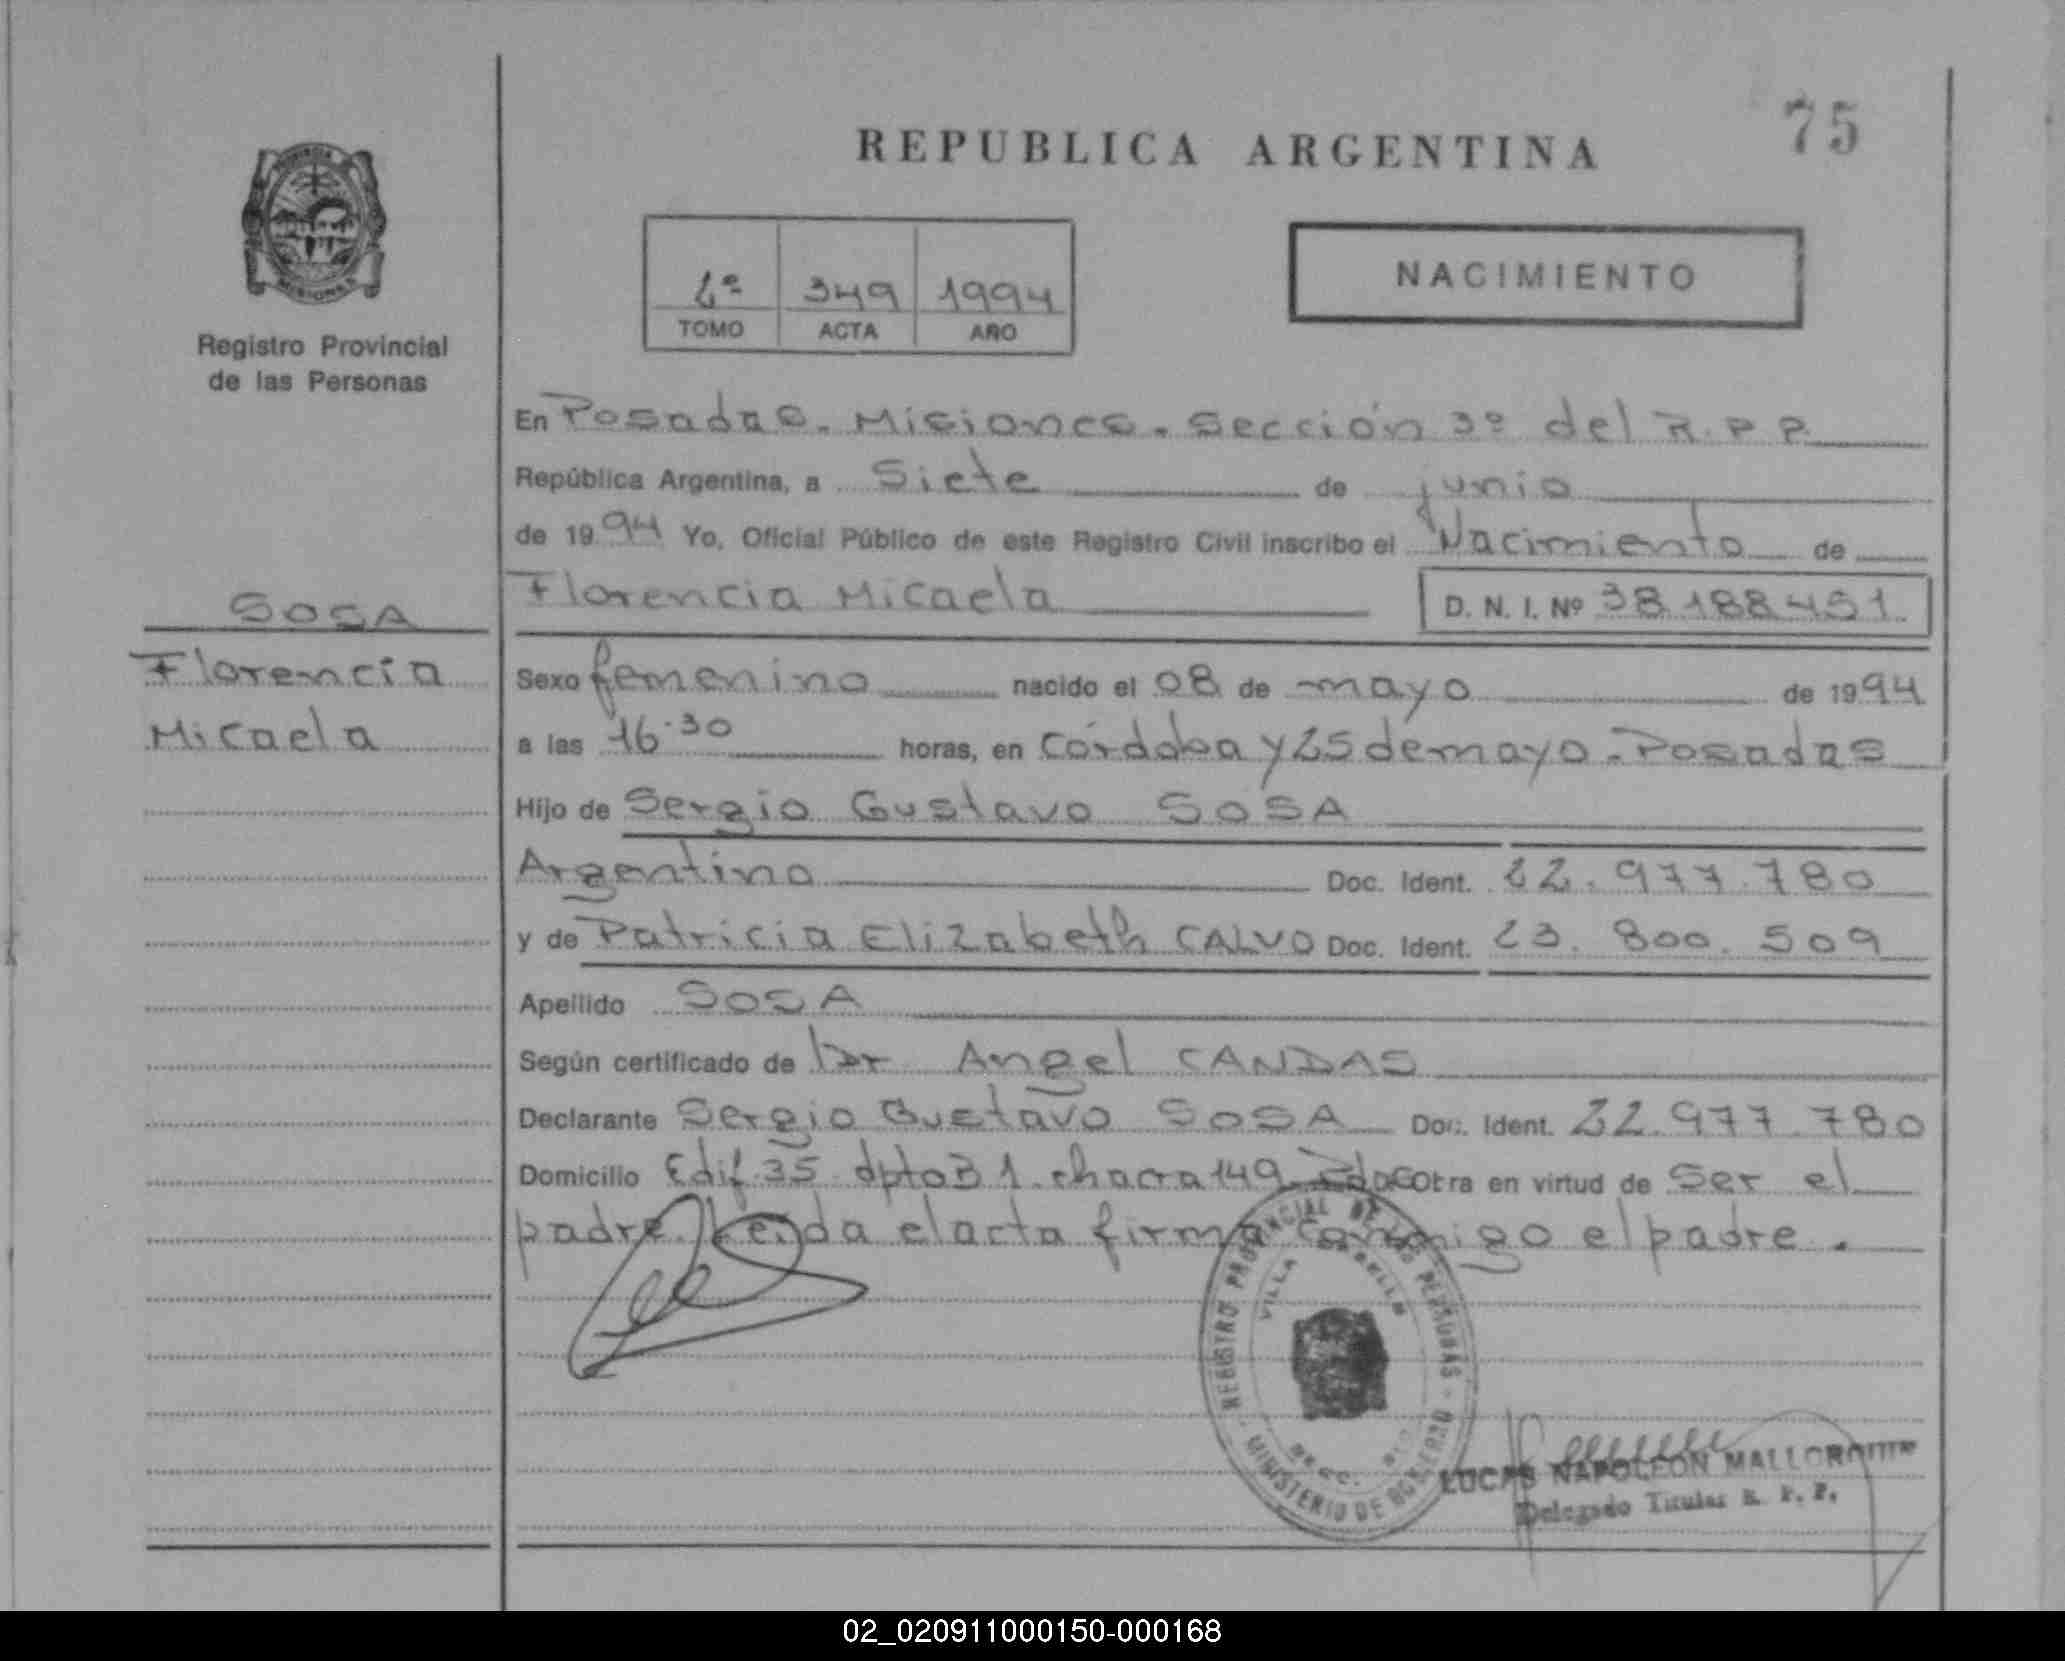 75
REPUBLICA ARGENTINA
PROVINCIA
MISIONES
Registro Provincial
de las Personas
2º 349 1994
TOMO ACTA AÑO
NACIMIENTO
En Posadas. Misiones. Sección 3º del R.P.P.
República Argentina, a Siete de junio
de 1994 Yo, Oficial Público de este Registro Civil inscribo el Nacimiento de
Florencia Micaela D. N. I. Nº 38.188.451
SOSA
Florencia
Micaela
Sexo femenino nacido el 08 de mayo de 1994
a las 16.30 horas, en Córdoba y 25 de mayo - Posadas
Hijo de Sergio Gustavo SOSA
Argentino Doc. Ident. 22.977.780
y de Patricia Elizabeth CALVO Doc. Ident. 23.800.509
Apellido SOSA
Según certificado de Dr Angel CANDAS
Declarante Sergio Gustavo SOSA Doc. Ident. 22.977.780
Domicilio Edif.35 dpto B 1. chacra 149 Pdas Obra en virtud de Ser el
padre. Leída el acta firma conmigo el padre.
REGISTRO PROVINCIAL DE LAS PERSONAS - MINISTERIO DE GOBIERNO
VILLA
LUCAS NAPOLEON
Delegado Titular R. P. P.
02_020911000150-000168